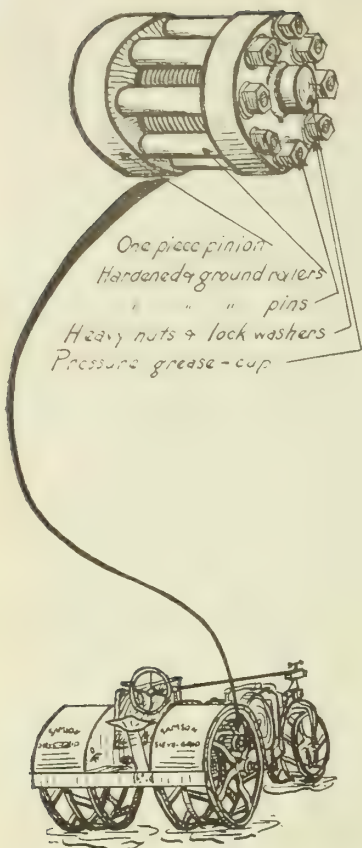 One piece pinion
Hardened & ground rollers
" " " pins
Heavy nuts & lock washers
Pressure grease-cup
SAMSON
SIEVE-GRIP
SAMSON
SIEVE-GRIP